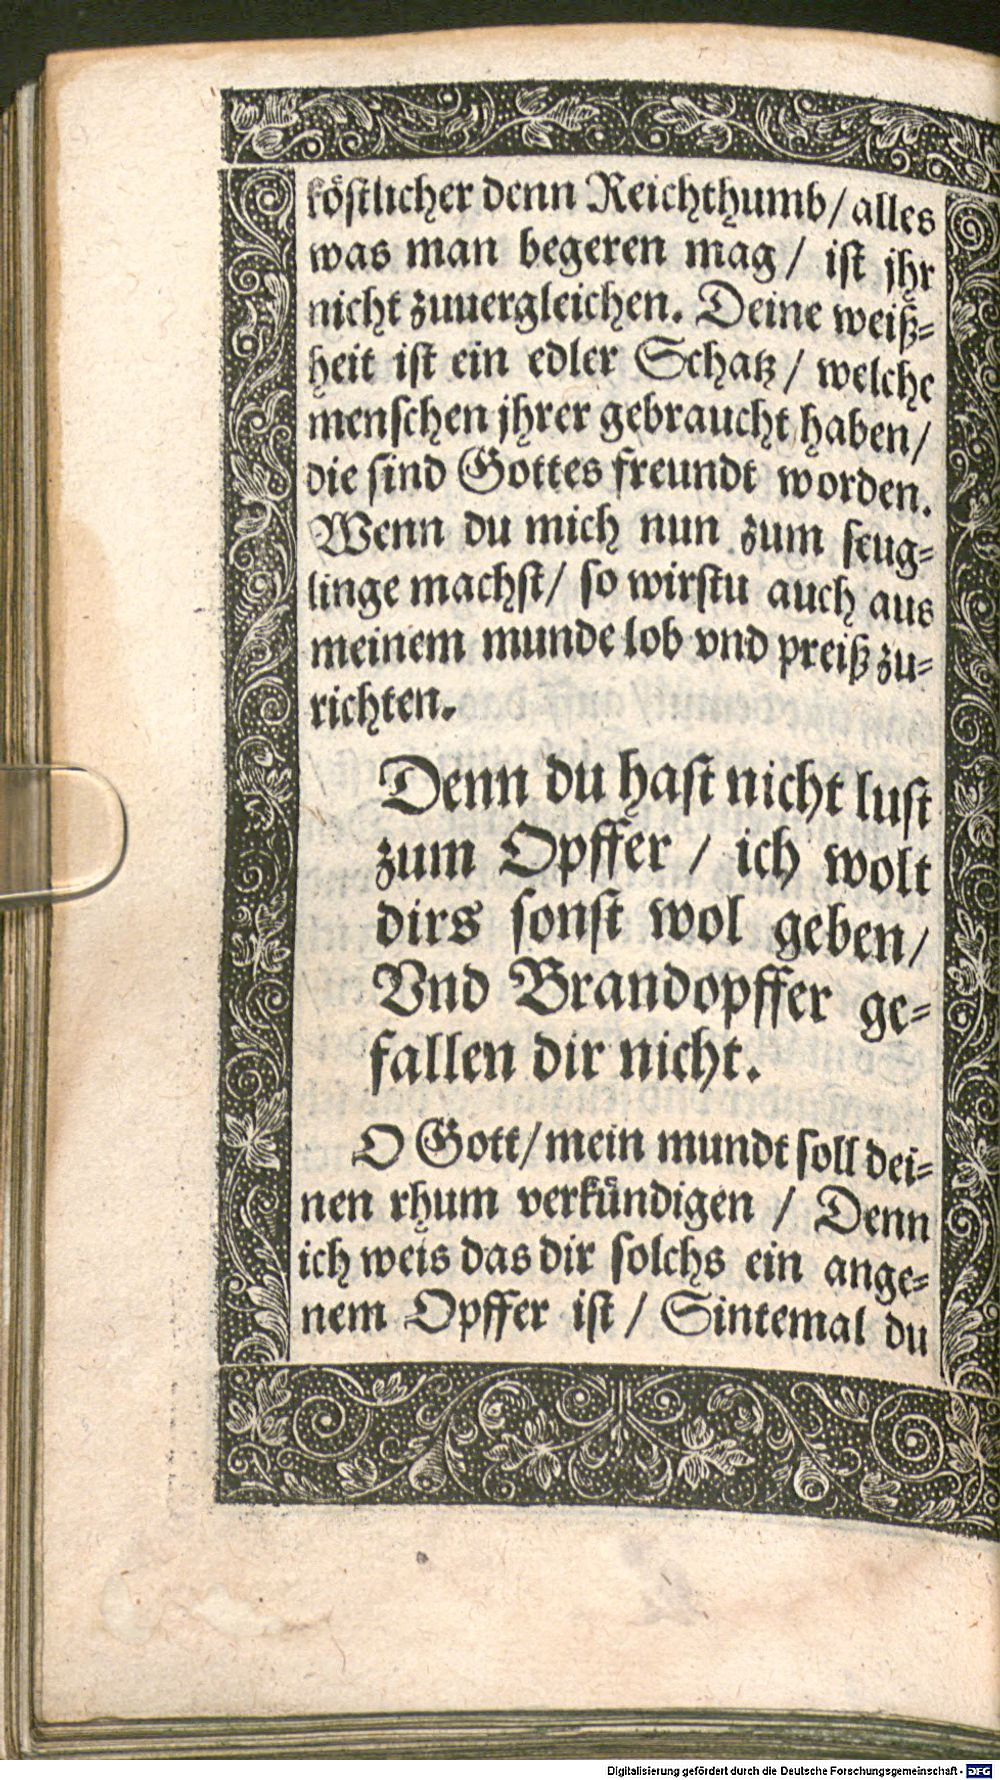 köſtlicher denn Reichthumb/ alles
was man begeren mag / iſt jhr
nicht zuuergleichen. Deine weiß⸗
heit iſt ein edler Schatz / welche
menſchen jhrer gebraucht haben/
die ſind Gottes freundt worden.
Wenn du mich nun zum ſeug⸗
linge machſt/ ſo wirſtu auch aus
meinem munde lob vnd preiß zu⸗
richten.
Denn du haſt nicht luſt
zum Opffer / ich wolt
dirs ſonſt wol geben/
Vnd Brandopffer ge⸗
fallen dir nicht.
O Gott/ mein mundt ſoll dei⸗
nen rhum verkündigen / Denn
ich weis das dir ſolchs ein ange⸗
nem Opffer iſt / Sintemal du
Digitalisierung gefördert durch die Deutsche Forschungsgemeinschaft - DFG